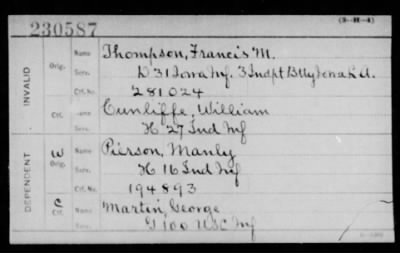 (3-H-4)
230587
Name Thompson, Francis M.
Orig. Serv. D 31 Iowa Inf. 3 Indpt Btty Iowa L.A.
INVALID Ctf. No. 281024
Ctf. Name Cunliffe, William
Serv. H 27 Ind Inf
W Orig. Name Pierson, Manly
Serv. H 16 Ind Inf
DEPENDENT Ctf. No. 194893
C Ctf. Name Martin, George
Serv. G 100 USC Inf